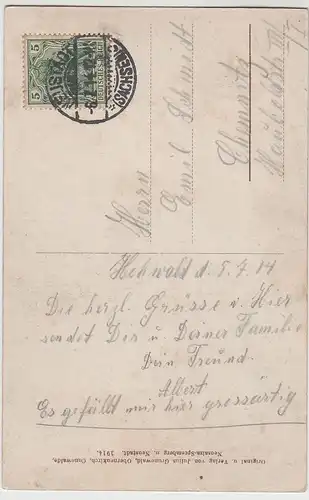 Herrn
Emil Schmidt
Chemnitz
Hochwald d. 5.7.14
Die herzl. Grüsse v. Hier
sendet Dir u. Deiner Familie
Dein Freund.
Albert
Es gefällt mir hier grossartig
Original u. Verlag von Julius Grunewald, Oberneukirch, Cunewalde,
Neusalza-Spremberg u. Neustadt. 1914.
5 DEUTSCHES REICH 5
NEUSTADT
(SACHSEN)